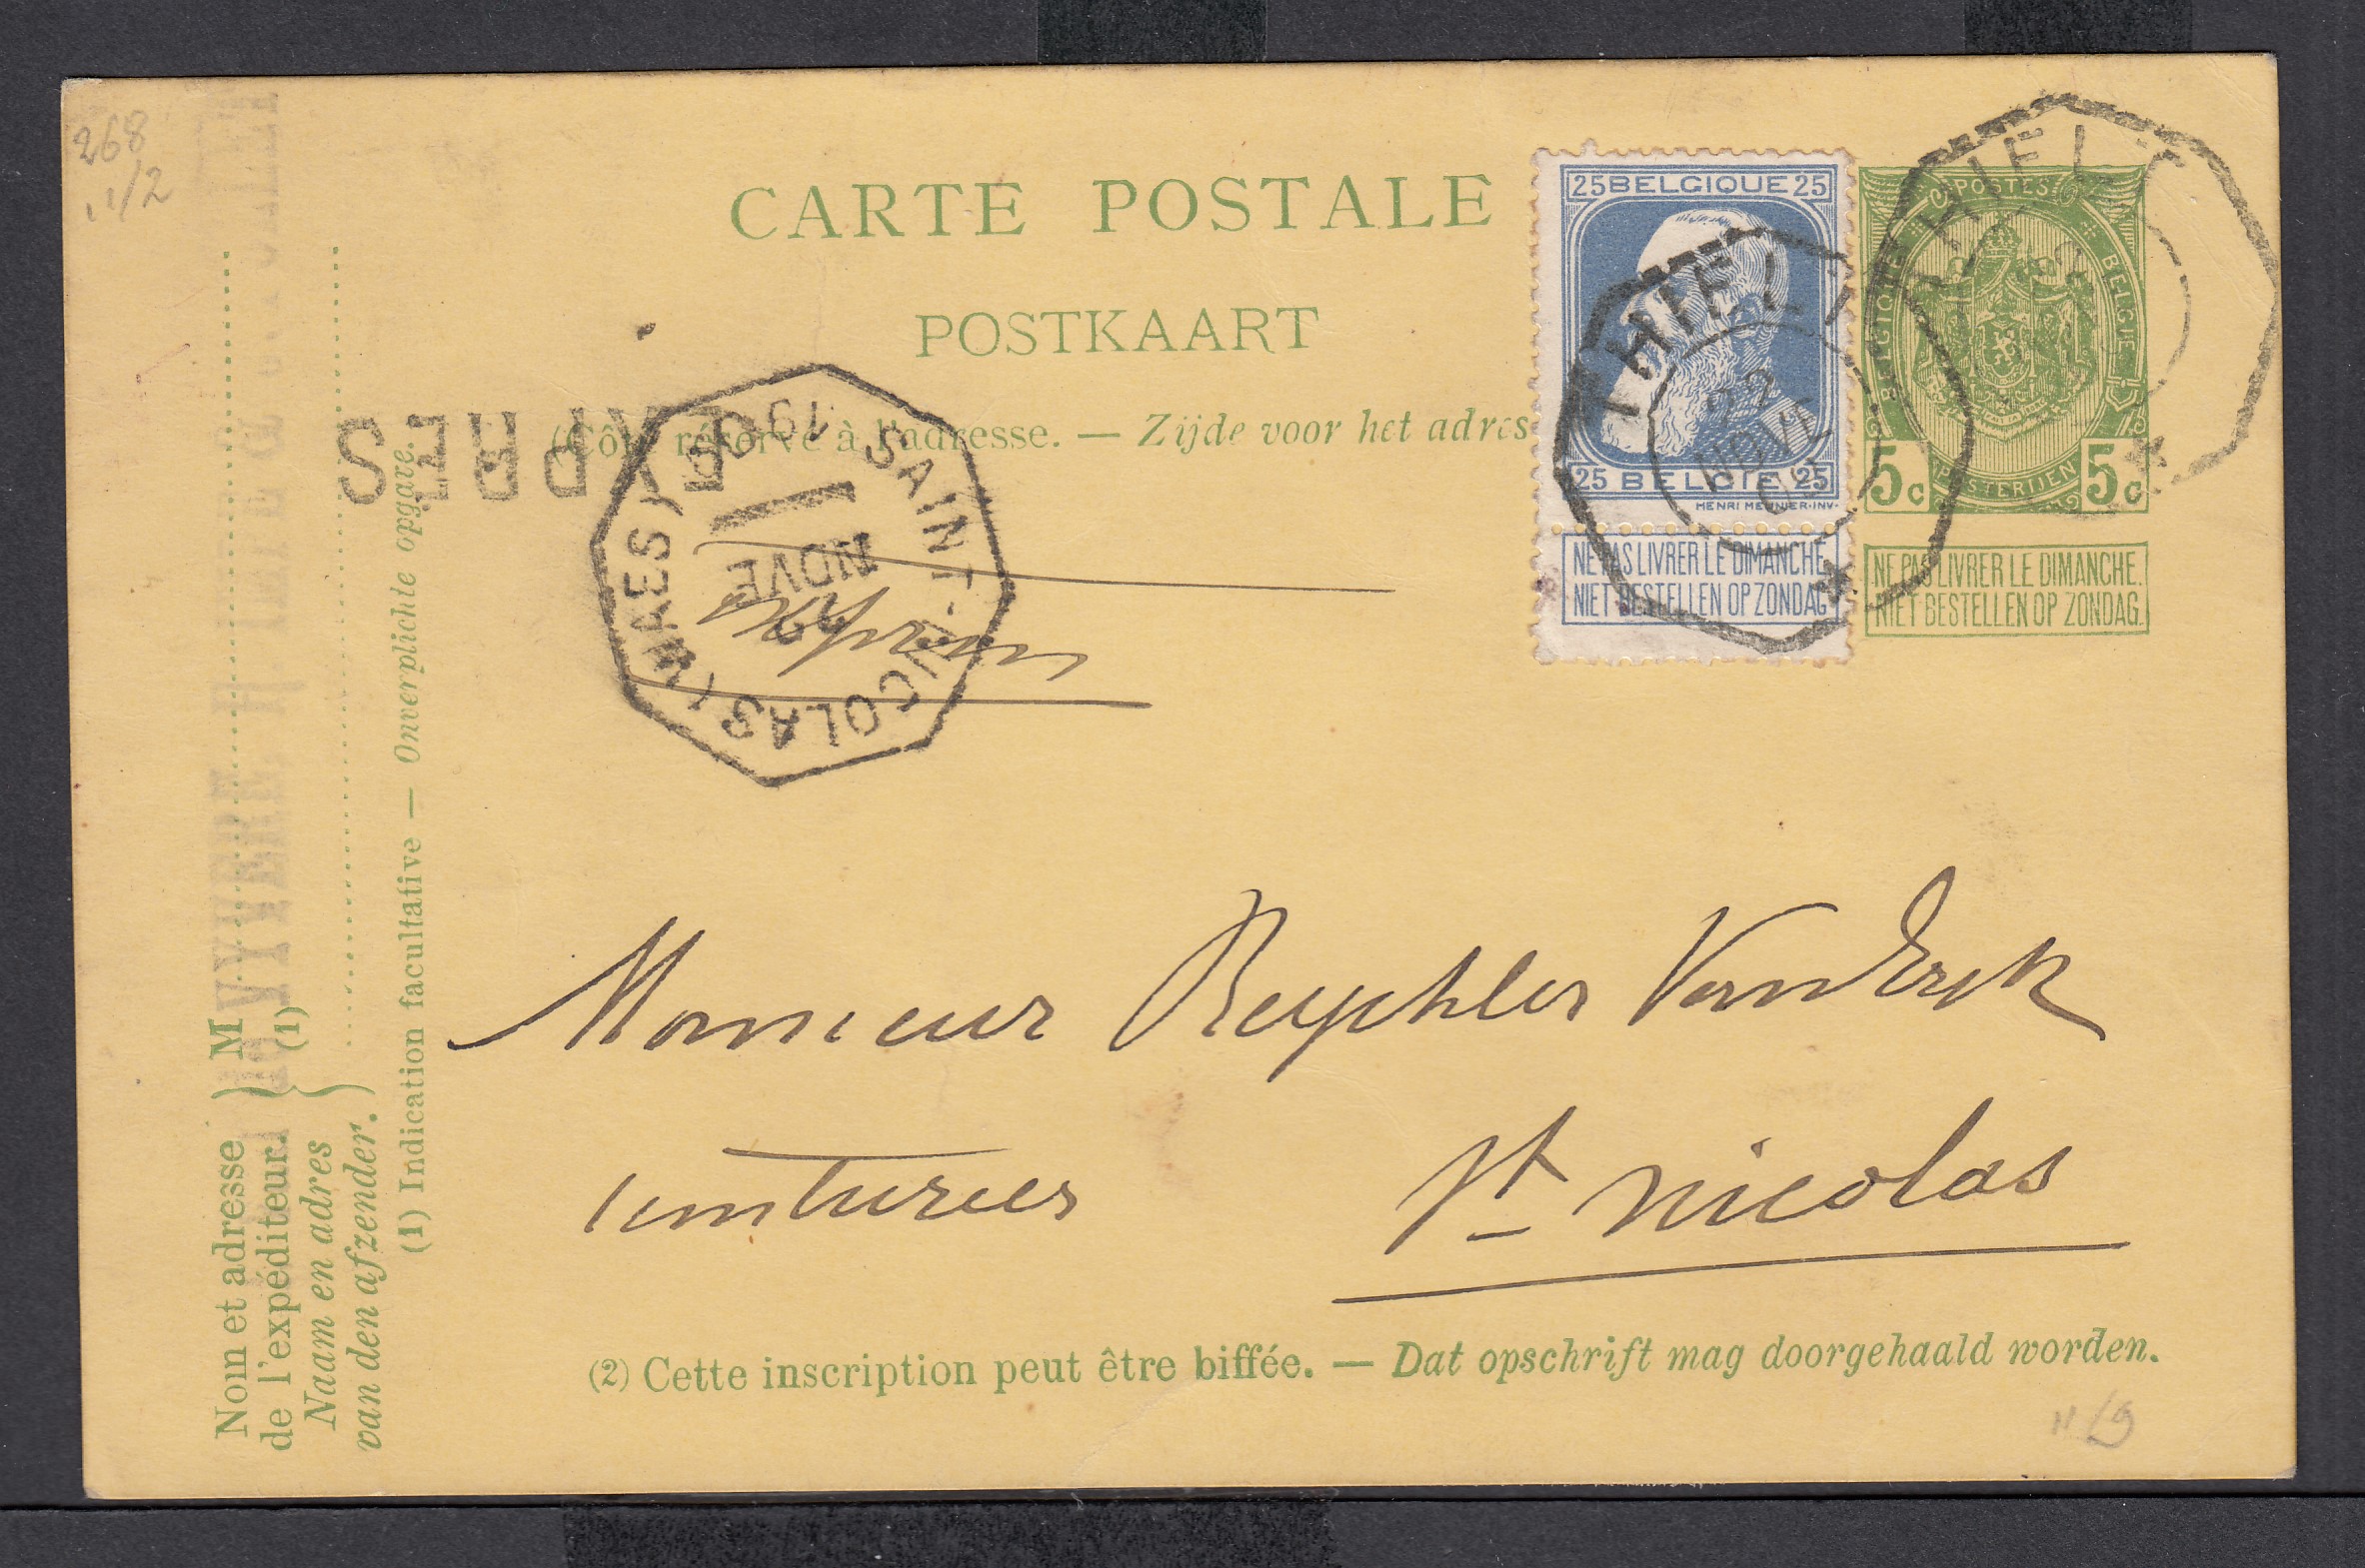 268
1/2
CARTE POSTALE
POSTKAART
(Côté réservé à l'adresse. — Zijde voor het adres
EXPRES
SAINT-NICOLAS (WAES)
22
NOVE
25 BELGIQUE 25
25 BELGIE 25
HENRI MEUNIER·INV·
NE PAS LIVRER LE DIMANCHE
NIET BESTELLEN OP ZONDAG
THIELT
22
NOVE
POSTES
BELGIQUE
BELGIE
POSTERIJEN
5c 5c
NE PAS LIVRER LE DIMANCHE.
NIET BESTELLEN OP ZONDAG.
THIELT
Monsieur Reychler VanderEyk
St Nicolas
(2) Cette inscription peut être biffée. — Dat opschrift mag doorgehaald worden.
Nom et adresse
de l'expéditeur.
M
(1)
Naam en adres
van den afzender.
(1) Indication facultative — Onverplichte opgave.